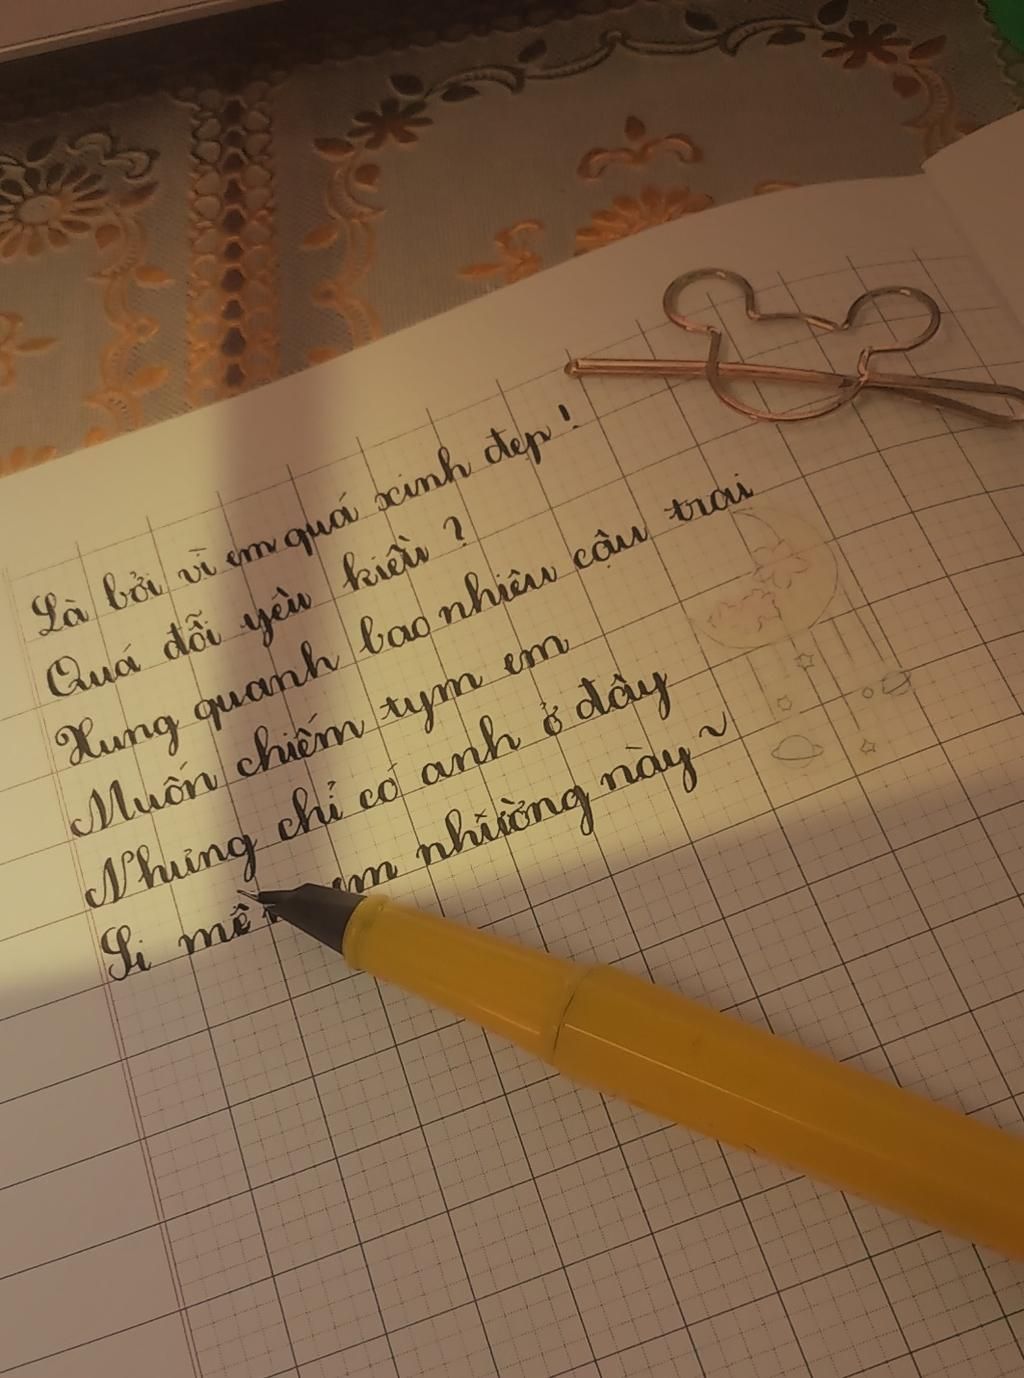 Là bởi vì em quá xinh đẹp!
Quá đỗi yêu kiều?
Xung quanh bao nhiêu cậu trai
Muốn chiếm tym em
Nhưng chỉ có anh ở đây
Si mê em nhường này~